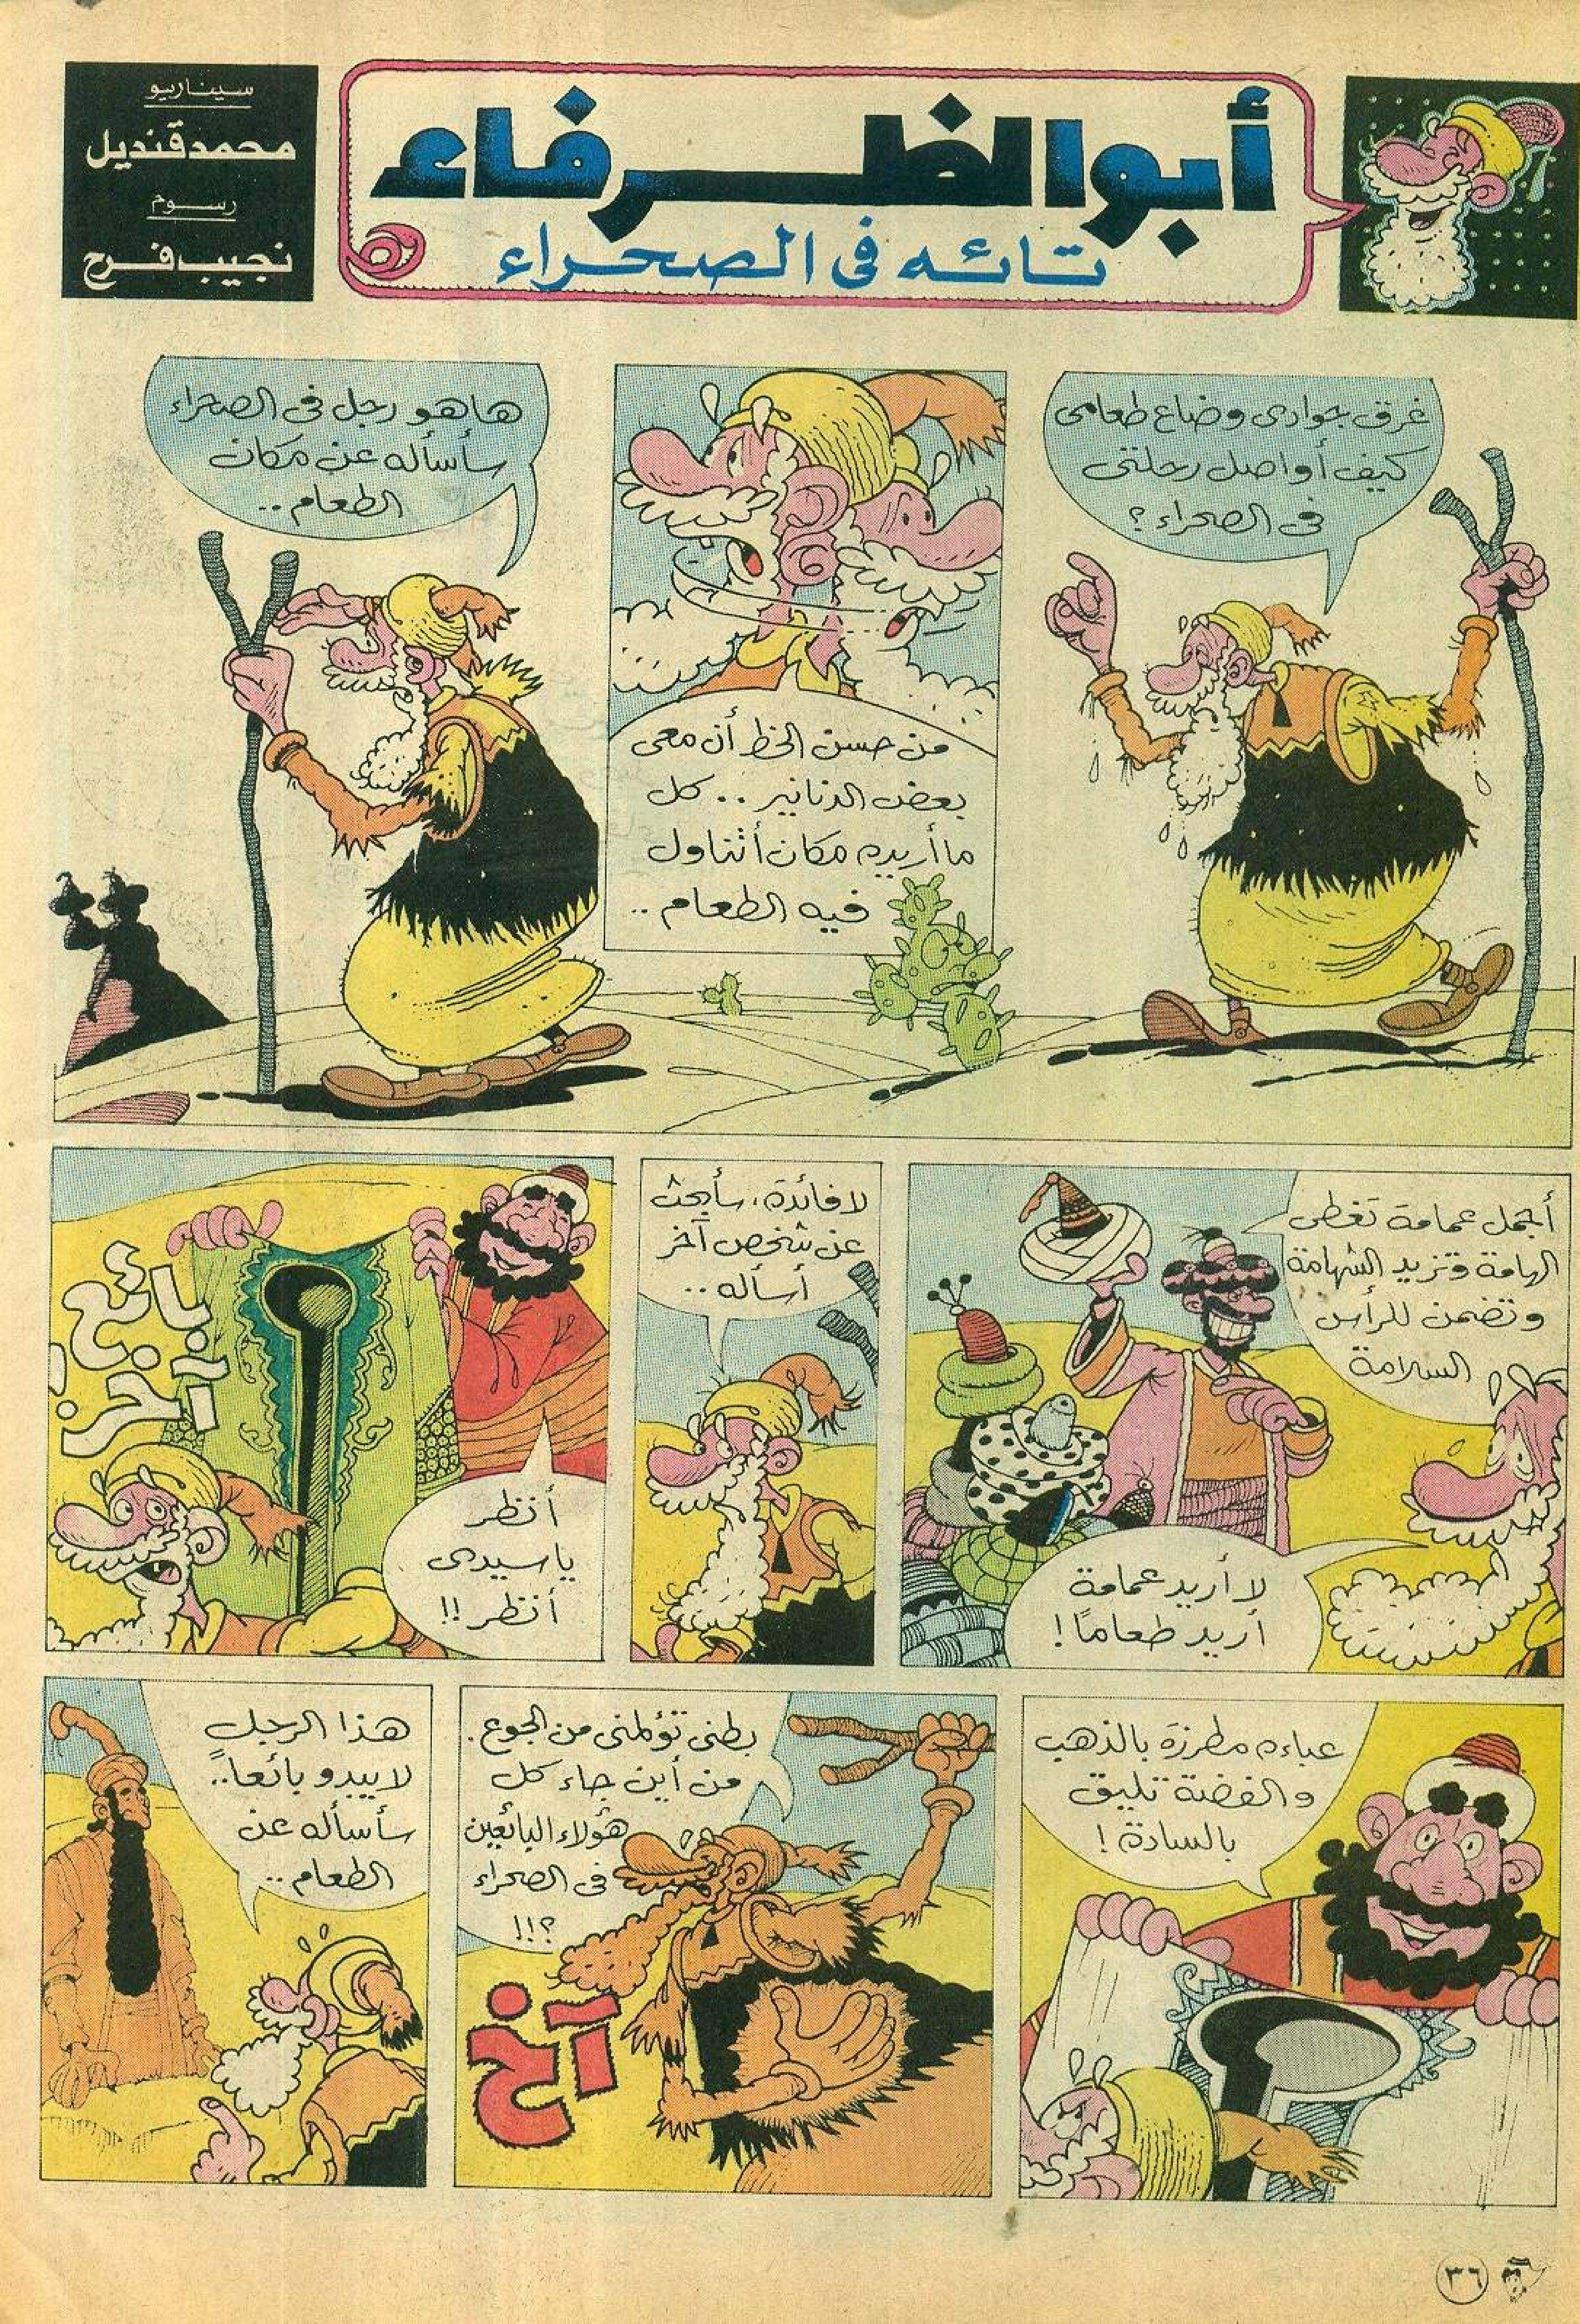 أبو الظرفاء
تائه فى الصحراء
سيناريو
محمد قنديل
رسوم
نجيب فرج
غرق جوادى وضاع طعامى
كيف أواصل رحلتى
فى الصحراء؟
من حسن الحظ أن معى
بعض الدنانير .. كل
ما أريده مكان أتناول
فيه الطعام ..
ها هو رجل فى الصحراء
سأسأله عن مكان
الطعام ..
أجمل عمامة تغطى
الهامة وتزيد الشهامة
وتضمن للرأس
السلامة
لا أريد عمامة
أريد طعامًا!
لا فائدة، سأبحث
عن شخص آخر
أسأله ..
بائع
آخر!
أنظر
يا سيدى
أنظر!!
عباءه مطرزة بالذهب
والفضة تليق
بالسادة!
بطنى تؤلمنى من الجوع.
من أين جاء كل
هؤلاء البائعين
فى الصحراء
؟!!
آخ
هذا الرجل
لا يبدو بائعاً..
سأسأله عن
الطعام ..
٣٦